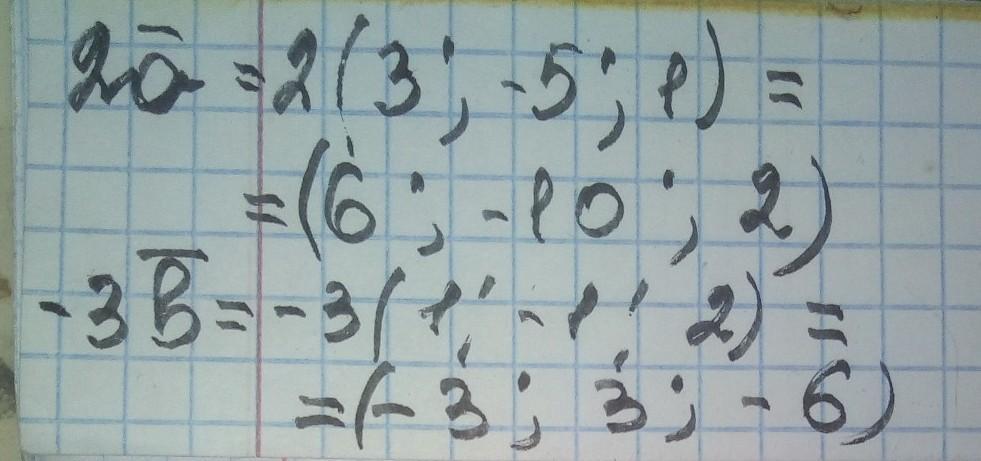 2ā = 2(3; -5; 1) =
= (6; -10; 2)
-3b̄ = -3(1; -1; 2) =
= (-3; 3; -6)